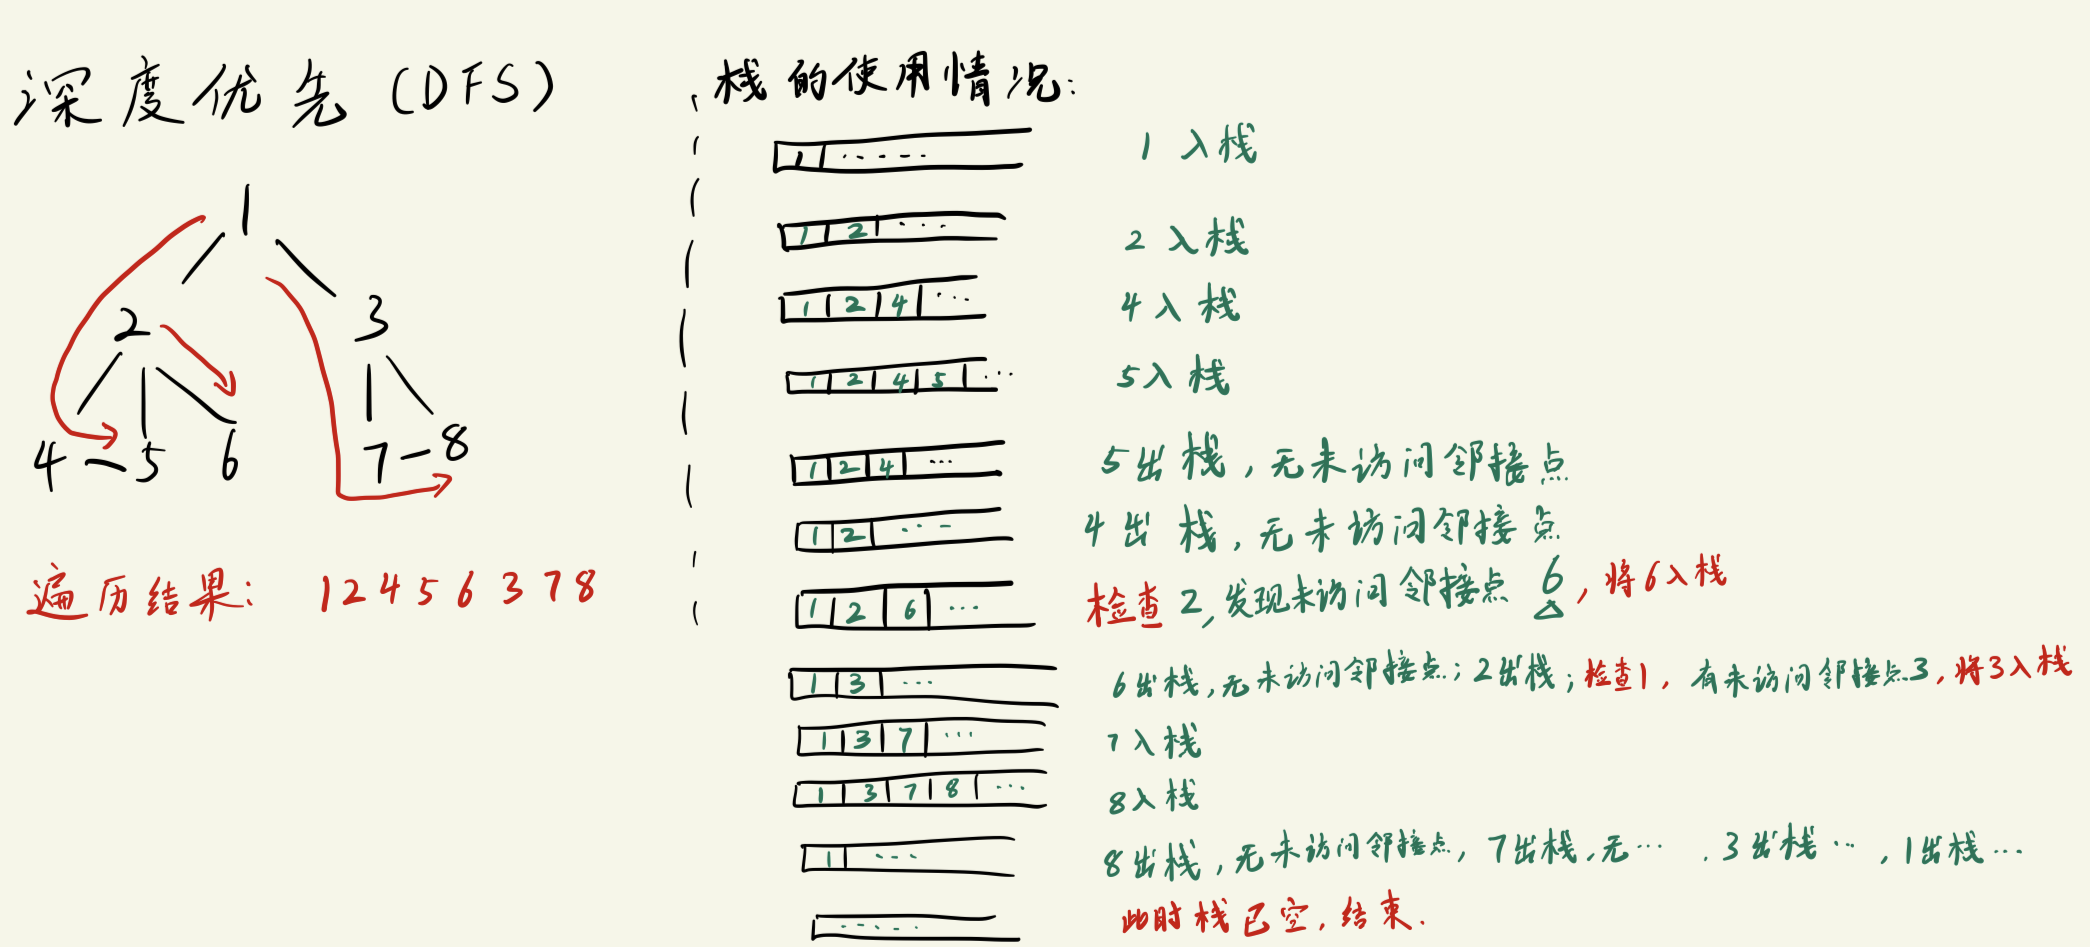 深度优先 (DFS)
1
2 3
4 5 6 7 8
遍历结果: 1 2 4 5 6 3 7 8
栈的使用情况:
1 ..... 1 入栈
1 2 .... 2 入栈
1 2 4 ... 4 入栈
1 2 4 5 ... 5 入栈
1 2 4 ... 5 出栈, 无未访问邻接点
1 2 ... 4 出栈, 无未访问邻接点
1 2 6 ... 检查 2, 发现未访问邻接点 6, 将 6 入栈
1 3 ... 6 出栈, 无未访问邻接点; 2 出栈; 检查1, 有未访问邻接点3, 将3入栈
1 3 7 ... 7 入栈
1 3 7 8 ... 8 入栈
1 ... 8 出栈, 无未访问邻接点, 7 出栈, 无 ... . 3 出栈 ..., 1 出栈 ...
..... 此时栈已空, 结束.